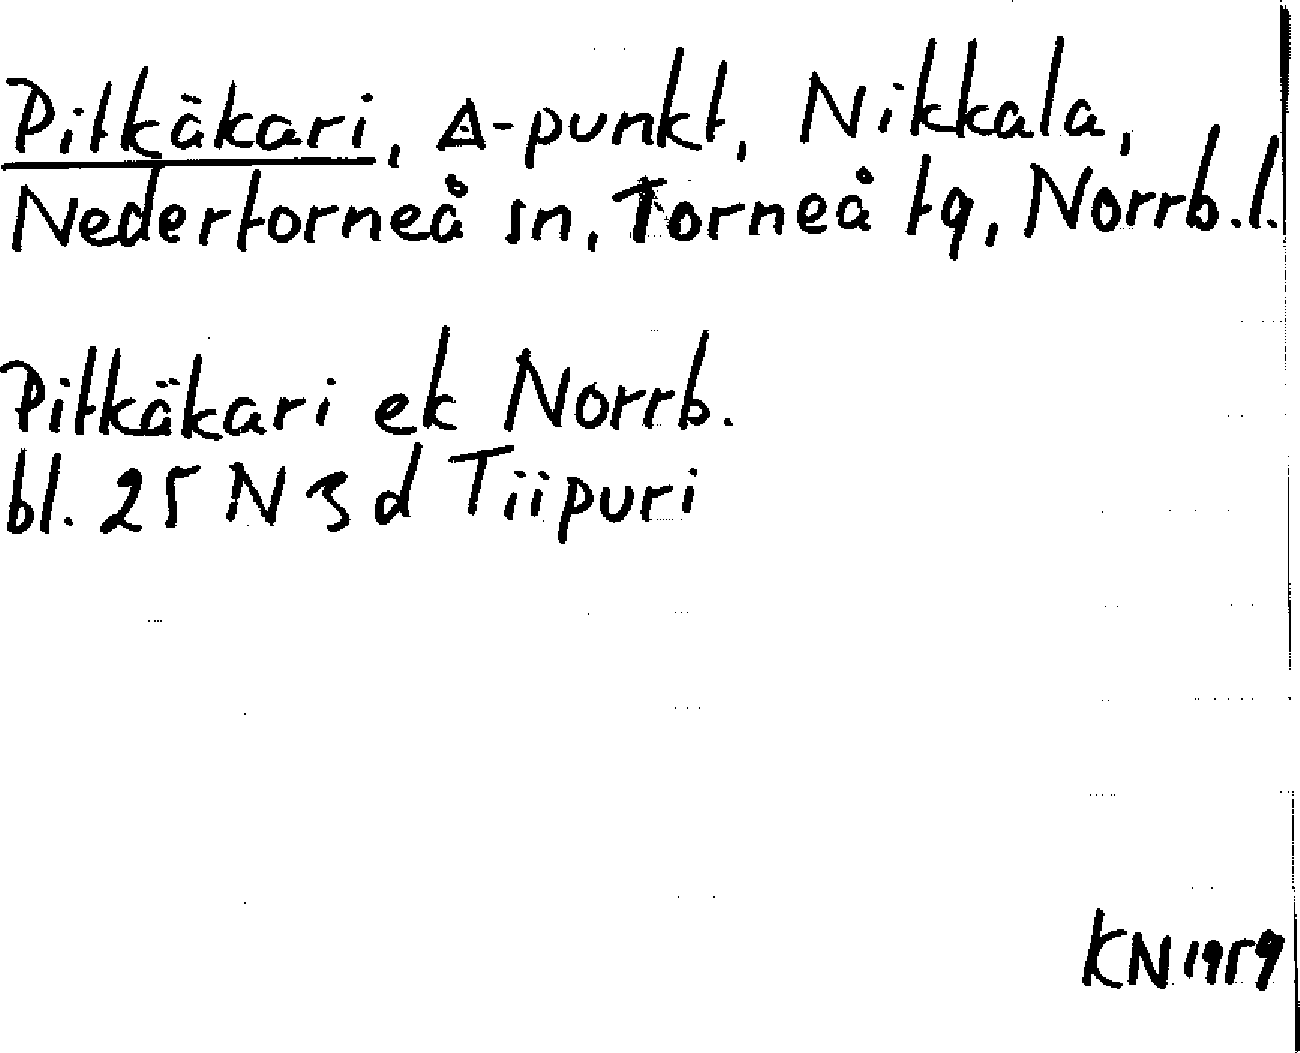 Pitkäkari, Δ-punkt, Nikkala,
Nedertorneå sn, Torneå tg, Norrb. l.
Pitkäkari ek Norrb.
bl. 25 N 3 d Tiipuri
KN 1959